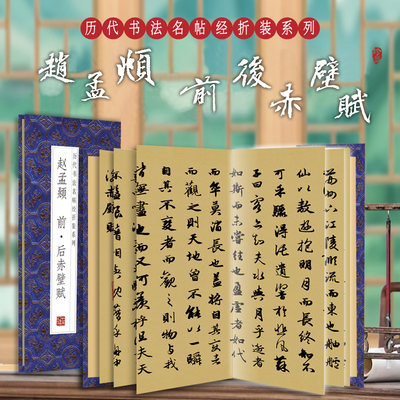 历代书法名帖经折装系列
趙孟頫 前後赤壁賦
历代书法名帖经折装系列
赵孟頫 前·后赤壁赋
荆州下江陵順流而東也舳艫
仙以遨遊抱明月而長終知不
可乎驟得託遺響於悲風蘇
子曰客亦知夫水與月乎逝者
如斯而未嘗往也盈虛者如代
而卒莫消長也蓋將自其變者
而觀之則天地曾不能以一瞬
自其不變者而觀之則物與我
皆無盡也而又何羨乎且夫天